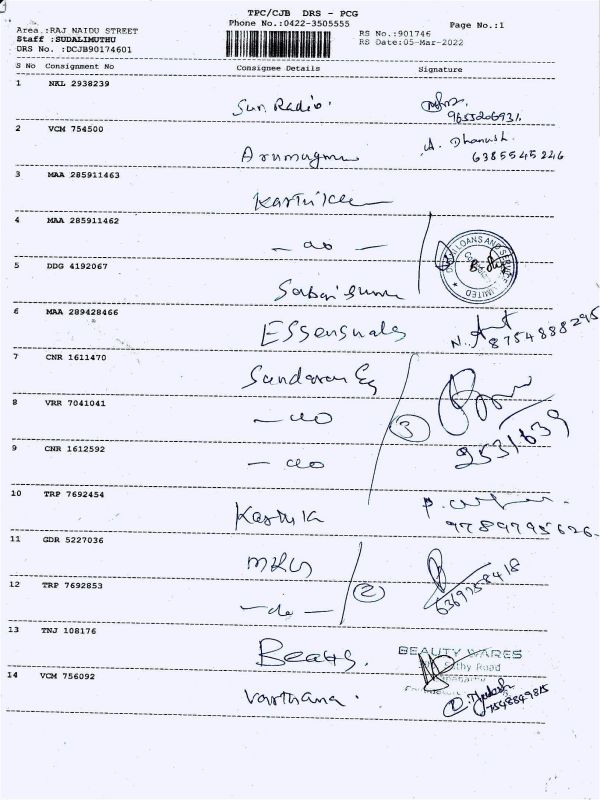 TPC/CJB DRS - PCG
Phone No.:0422-3505555
Page No.:1
Area :RAJ NAIDU STREET
Staff :SUDALIMUTHU
DRS No. :DCJB90174601
RS No.:901746
RS Date:05-Mar-2022
S No Consignment No Consignee Details Signature
1 NKL 2938239
Sun Radio.
9655206931
2 VCM 754500
Arumugam
A. Dhanush.
6385545246
3 MAA 285911463
Karthik
4 MAA 285911462
- do -
LOANS AND
LIMITED
5 DDG 4192067
6 MAA 289428466
Essensuals
N.
8754888295
7 CNR 1611470
Sundaram
8 VRR 7041041
- do
3
9531639
9 CNR 1612592
- do
10 TRP 7692454
Karthik
9789795626
11 GDR 5227036
MKS
2
6369758418
12 TRP 7692853
- do -
13 TNJ 108176
Beauty.
BEAUTY WARES
Sathy Road
14 VCM 756092
Varthana.
7548849815